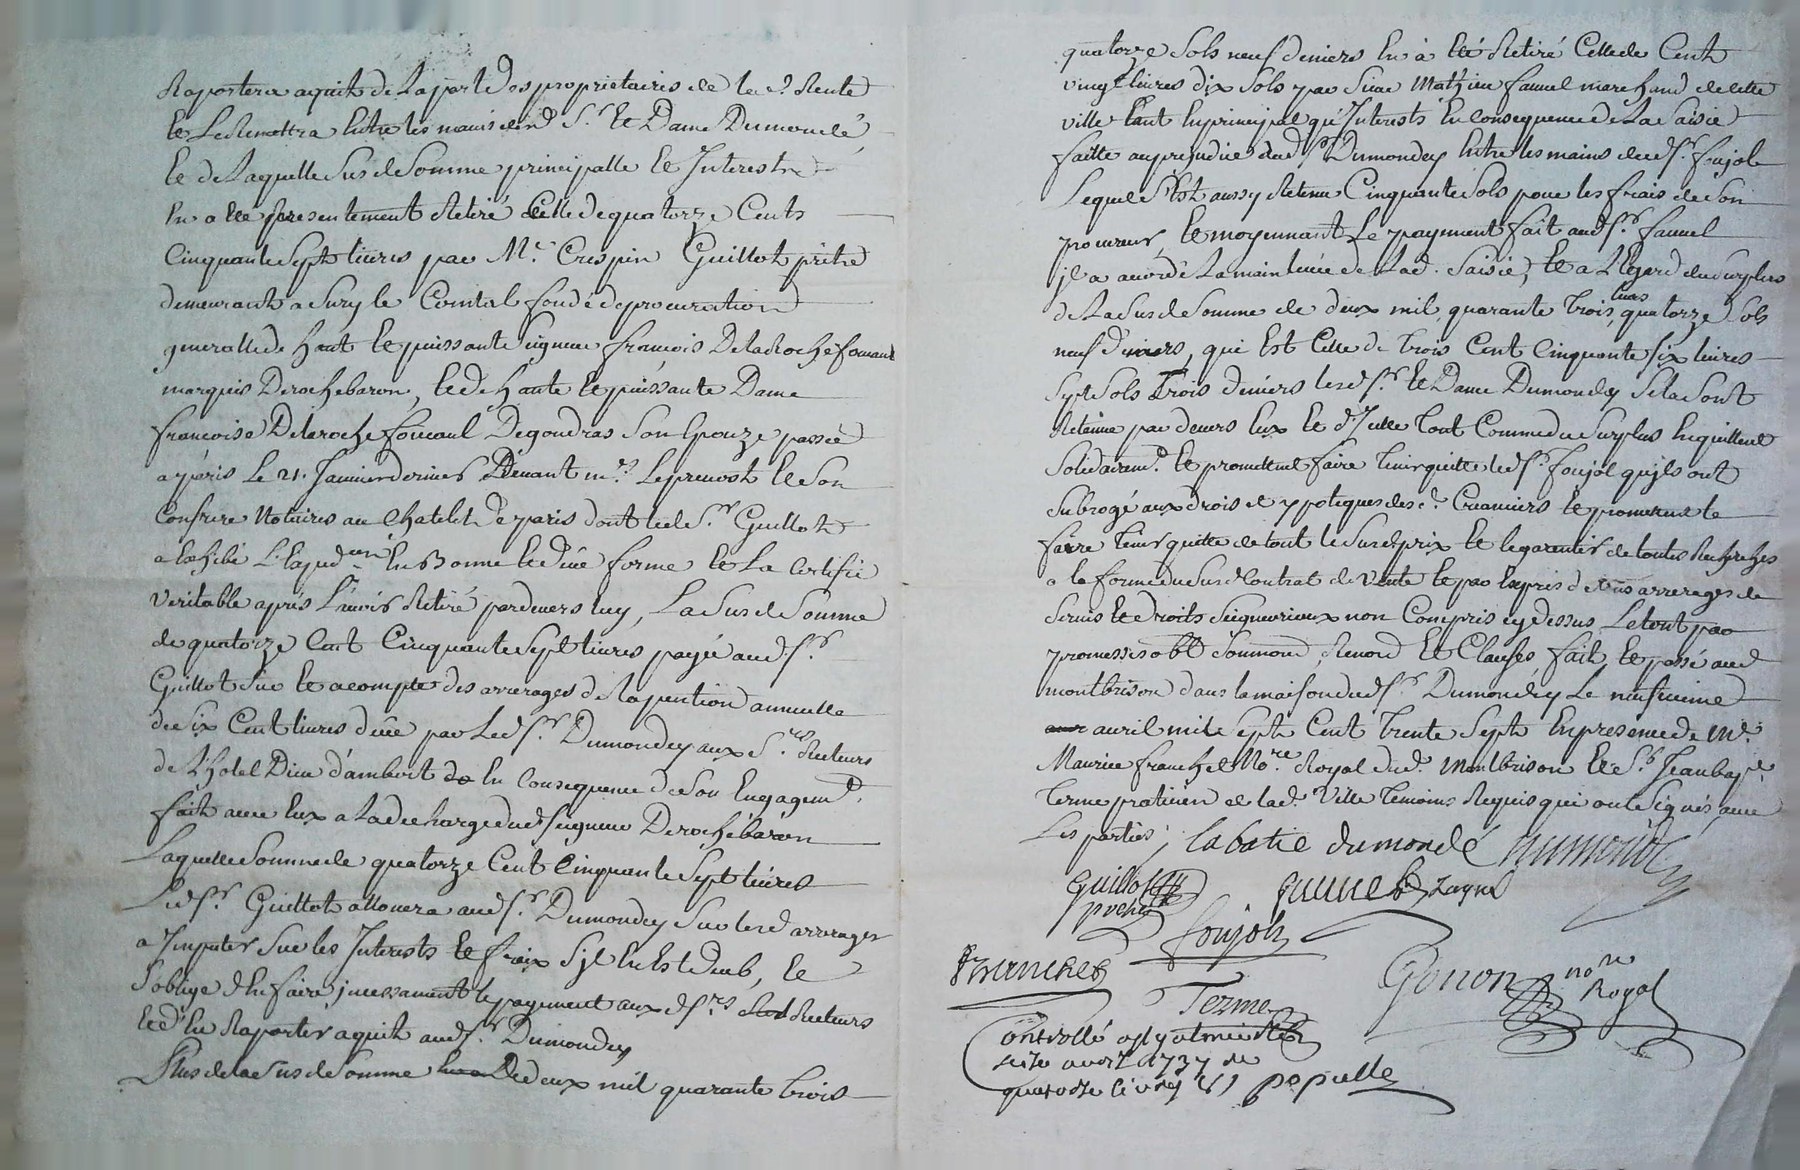 Raportera aquit de la part des propriétaires de lad. Rente
et le Remettra entre les mains desd. Sr et Dame Dumondé,
et de laquelle susd. somme principalle et Interests
en a été presentement Retiré celle de quatorze Cents
Cinquante sept livres par Mre Crespin Guillot prêtre
demeurant a Sury le Comtal fondé de procuration
generalle de haut et puissant seigneur françois Delarochefoucaut
marquis De rochebaron, et de haute et puissante Dame
francoise Delarochefoucaul Degondras son Epouze passée
a paris le 21. Janvier dernier Devant me. Leprevost et son
Confrere Notaires au Chatelet de paris dont led. Sr Guillot
a Exhibé l'Expedon. En Bonne et düe forme et la certifié
veritable aprés l'avoir Retiré pardevers luy, la susd. somme
de quatorze Cent Cinquante sept livres payée aud. Sr
Guillot sur et acompte des arrerages de la pention annuelle
de six Cent livres düe par led. Sr Dumondey aux Srs Recteurs
de l'hotel Dieu d'ambert en Consequence de son Engagemt.
fait avec Eux a la decharge dud. seigneur De rochebaron
Laquelle somme de quatorze Cent Cinquante sept livres
led. Sr Guillot allouera aud. Sr Dumondey sur lesd. arrerages
a Imputer sur les Interests et fraix sy'l En Est deub, et
s'oblige d'En faire incessament le payement auxd. Srs Recteurs
et d'En Raporter aquit aud. Sr Dumondey
Plus de la susd. somme De deux mil quarante trois
quatorze sols neuf deniers En à été Retiré Celle de Cent
vingt livres dix sols par Sieur Mathieu fauuel marchand de cette
ville tant En principal qu'Interests En consequence de La saisie
faitte au prejudice dud. Sr Dumondey Entre les mains dud. Sr foujols
Lequel s'Est aussy Retenu Cinquante sols pour les frais de son
procureur, et moyennant Le payment fait aud. Sr fauuel
il a accordé La main levée de Lad. saisie, et a l'Egard du surplus
de La susd. somme de deux mil quarante trois livres quatorze sols
neuf deniers, qui Est Celle de trois Cent Cinquante six livres
sept sols trois deniers lesd. Sr et Dame Dumondey se la sont
Retenüe par devers Eux et d'Icelle tout Comme du surplus En quittent
solidairemt. et promettent faire tenir quitte led. Sr foujol qu'ils ont
subrogé aux drois et ypoteques desd. Creanciers et promettent le
faire tenir quitte de tout le susd. prix et le garentir de toutes Recherches
a la forme du susd. Contrat de vente et par Exprés de tous arrerages de
servis et droits seigneuriaux non Compris cy dessus Le tout par
promesses obt. soumons. Renons. Et Clauses fait et passé aud.
montbrison dans la maison dud. Sr Dumondey Le neufvieme
avril mil sept Cent trente sept En presence de Me.
Maurice franchet Nore. Royal dud. Montbrison et Sr Jean bapte.
Terme praticien de lad. Ville temoins Requis qui ont signés avec
Les parties, labatie dumondé Dumondé
Guillot fauuel
prehe
foujols
Franchet Gonon nore
Terme Royal
Controllé a
seize avril 1737 Re
quatorze livres